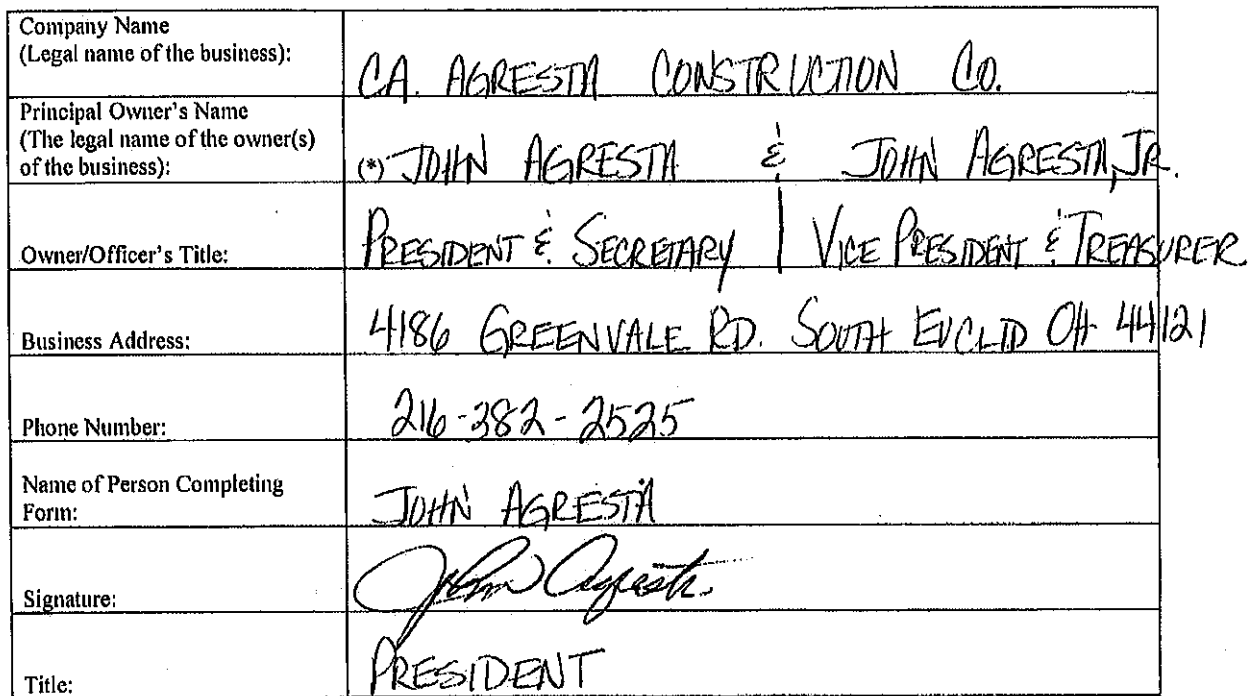 Company Name
(Legal name of the business):
CA. AGRESTA CONSTRUCTION CO.
Principal Owner's Name
(The legal name of the owner(s)
of the business):
(*) JOHN AGRESTA & JOHN AGRESTA, JR.
Owner/Officer's Title:
PRESIDENT & SECRETARY | VICE PRESIDENT & TREASURER
Business Address:
4186 GREENVALE RD. SOUTH EUCLID OH 44121
Phone Number:
216-382-2525
Name of Person Completing
Form:
JOHN AGRESTA
Signature:
John Agresta
Title:
PRESIDENT